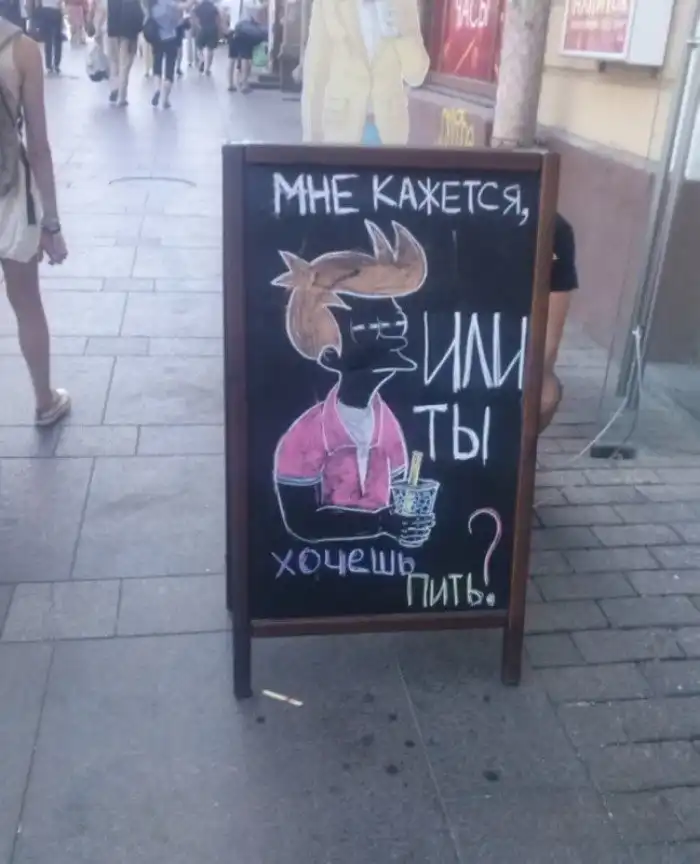 ЧАСЫ
МНЕ КАЖЕТСЯ,
ИЛИ
ТЫ
ХОЧЕШЬ
ПИТЬ?